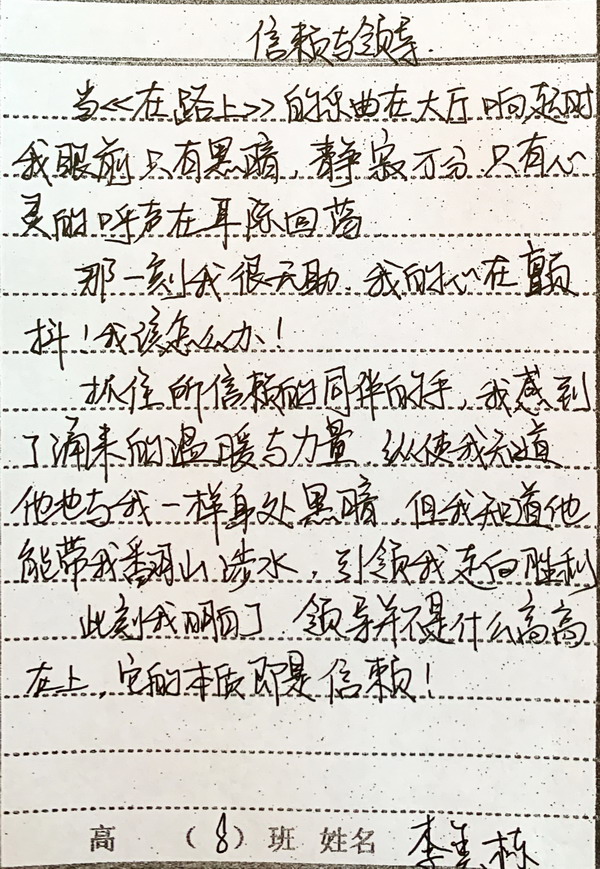 信赖与领导.
当<<在路上>>的乐曲在大厅响起时
我眼前只有黑暗,静寂万分 只有心
灵的呼声在耳际回荡
那一刻我很无助,我的心在颤
抖!我该怎么办!
抓住所信赖的同伴的手,我感到
了涌来的温暖与力量,纵使我知道
他也与我一样身处黑暗,但我知道他
能带我翻山涉水,引领我走向胜利
此刻我明白了 领导并不是什么高高
在上,它的本质即是信赖!
高 (8)班 姓名 李 栋